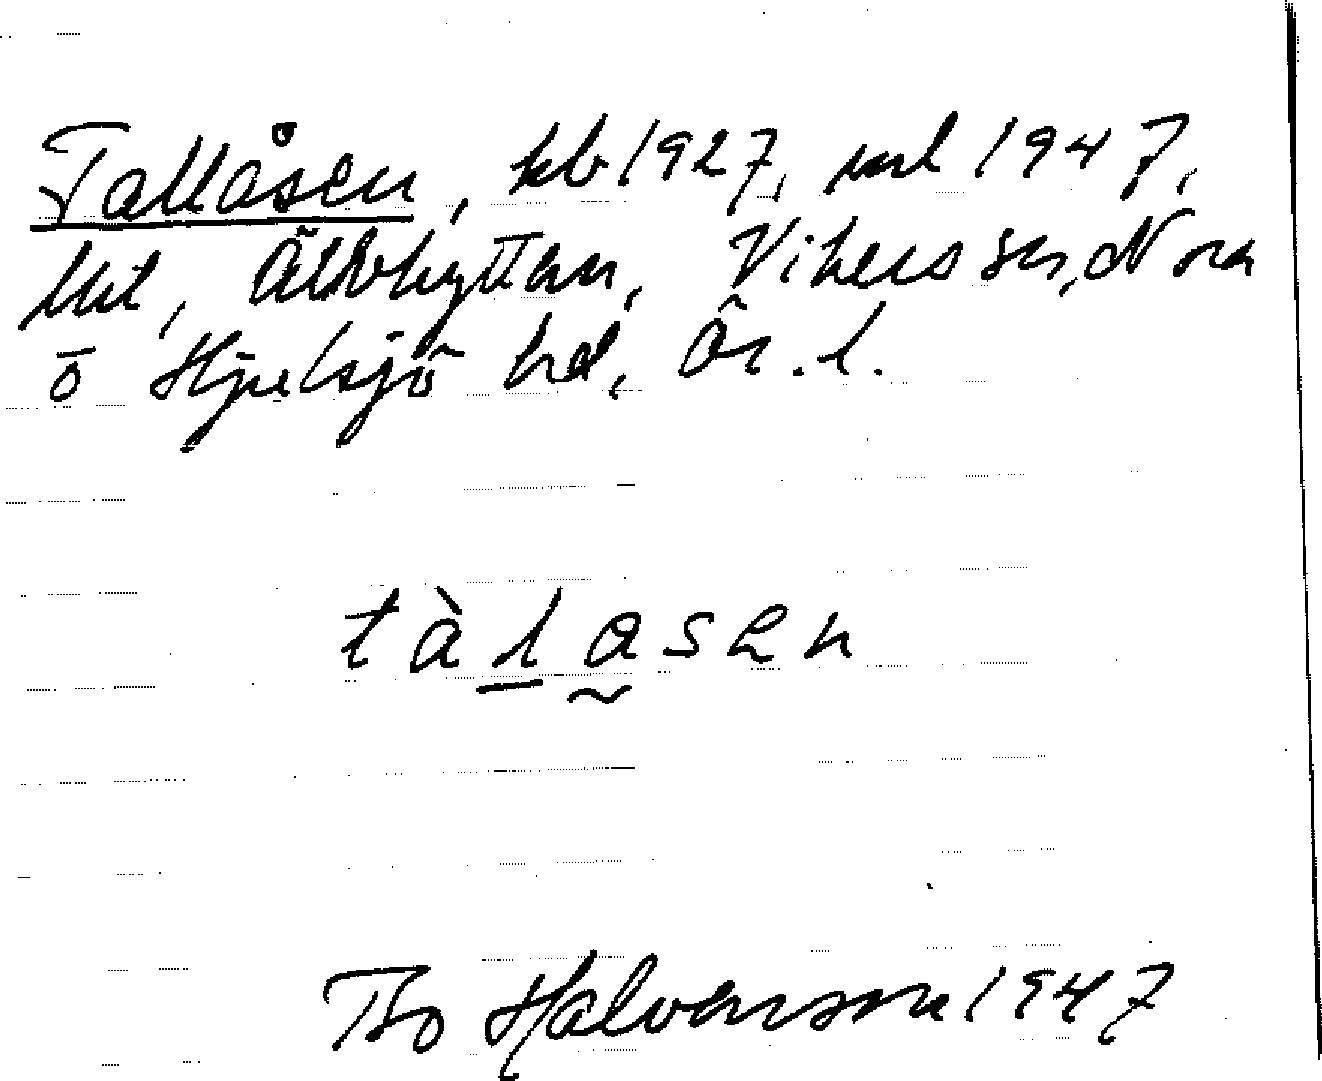 Tallåsen, kb 1927, ml 1947,
lht, Älvhyttan, Vikers sn, Nora
o Hjulsjö hd, Ör. l.
tàlasen
Bo Halvarson 1947